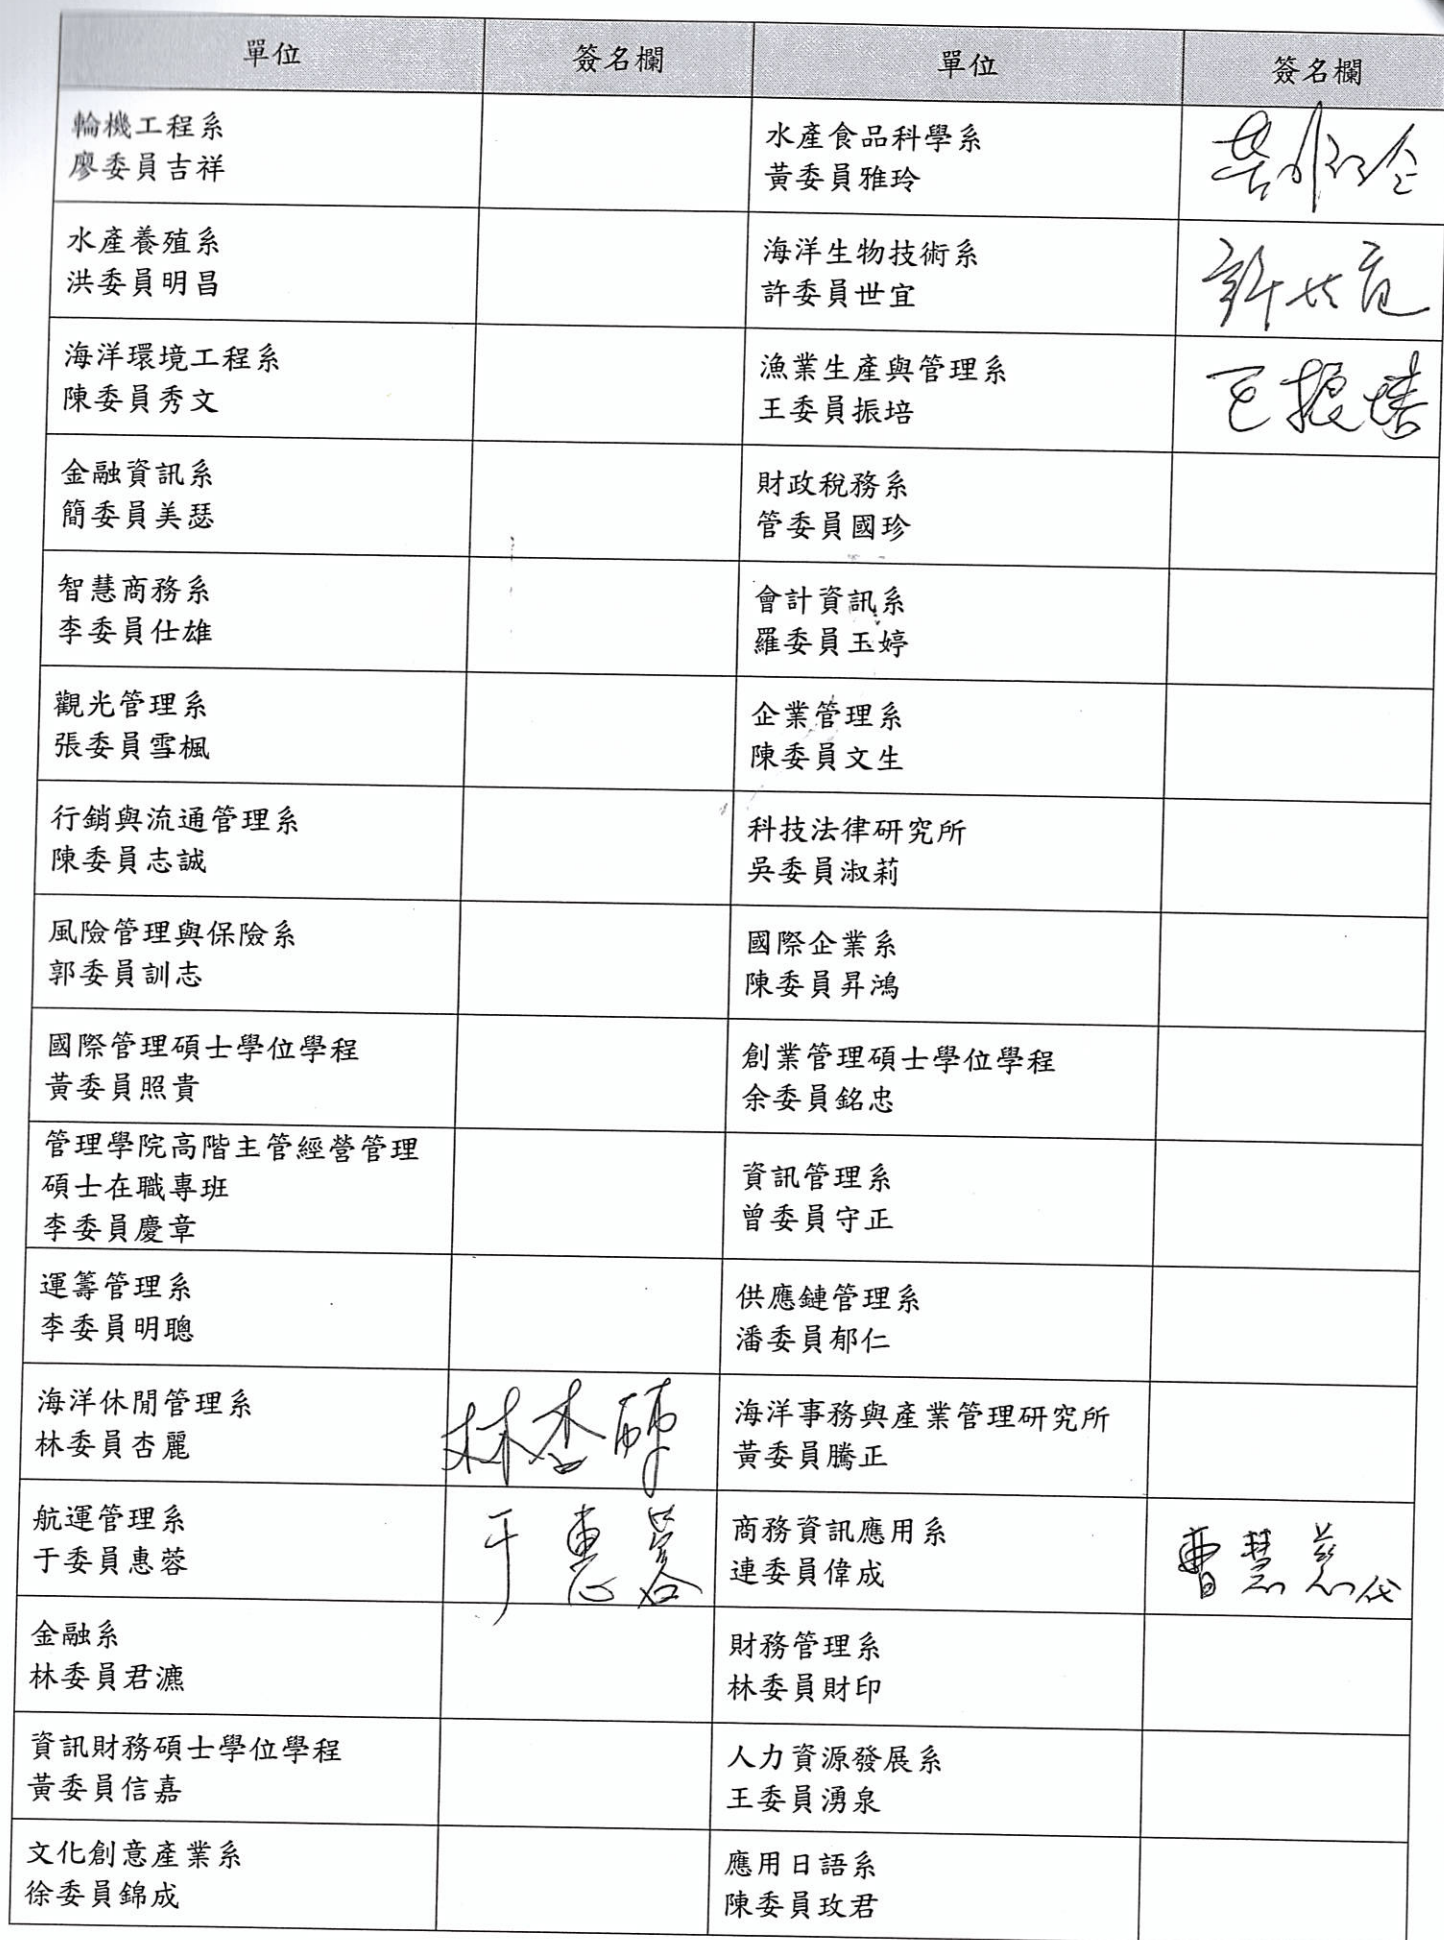 單位 簽名欄 單位 簽名欄
輪機工程系
廖委員吉祥
水產食品科學系
黃委員雅玲
黃雅玲
水產養殖系
洪委員明昌
海洋生物技術系
許委員世宜
許世宜
海洋環境工程系
陳委員秀文
漁業生產與管理系
王委員振培
王振培
金融資訊系
簡委員美瑟
財政稅務系
管委員國珍
智慧商務系
李委員仕雄
會計資訊系
羅委員玉婷
觀光管理系
張委員雪楓
企業管理系
陳委員文生
行銷與流通管理系
陳委員志誠
科技法律研究所
吳委員淑莉
風險管理與保險系
郭委員訓志
國際企業系
陳委員昇鴻
國際管理碩士學位學程
黃委員照貴
創業管理碩士學位學程
余委員銘忠
管理學院高階主管經營管理
碩士在職專班
李委員慶章
資訊管理系
曾委員守正
運籌管理系
李委員明聰
供應鏈管理系
潘委員郁仁
海洋休閒管理系
林委員杏麗
林杏麗
海洋事務與產業管理研究所
黃委員騰正
航運管理系
于委員惠蓉
于惠蓉
商務資訊應用系
連委員偉成
曹慧慈代
金融系
林委員君瀌
財務管理系
林委員財印
資訊財務碩士學位學程
黃委員信嘉
人力資源發展系
王委員湧泉
文化創意產業系
徐委員錦成
應用日語系
陳委員玫君